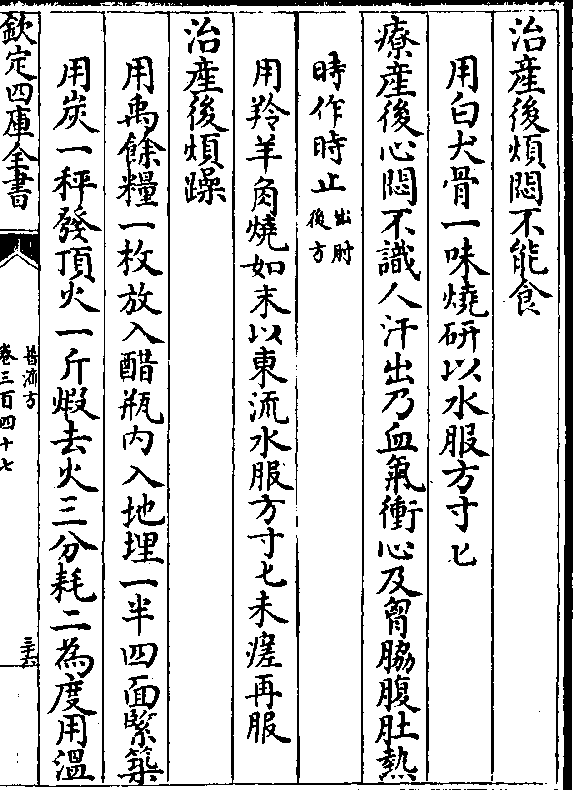 治産後煩悶不能食
用白犬骨一味燒研以水服方寸匕
療産後心悶不識人汗出乃血氣衝心及胷脇腹肚熱
時作時止出肘後方
用羚羊角燒如末以東流水服方寸匕未瘥再服
治産後煩躁
用禹餘糧一枚放入醋瓶内入地埋一半四面緊築
用炭一秤發頂火一斤煅去火三分耗二為度用溫
欽定四庫全書
普濟方
卷三百四十七